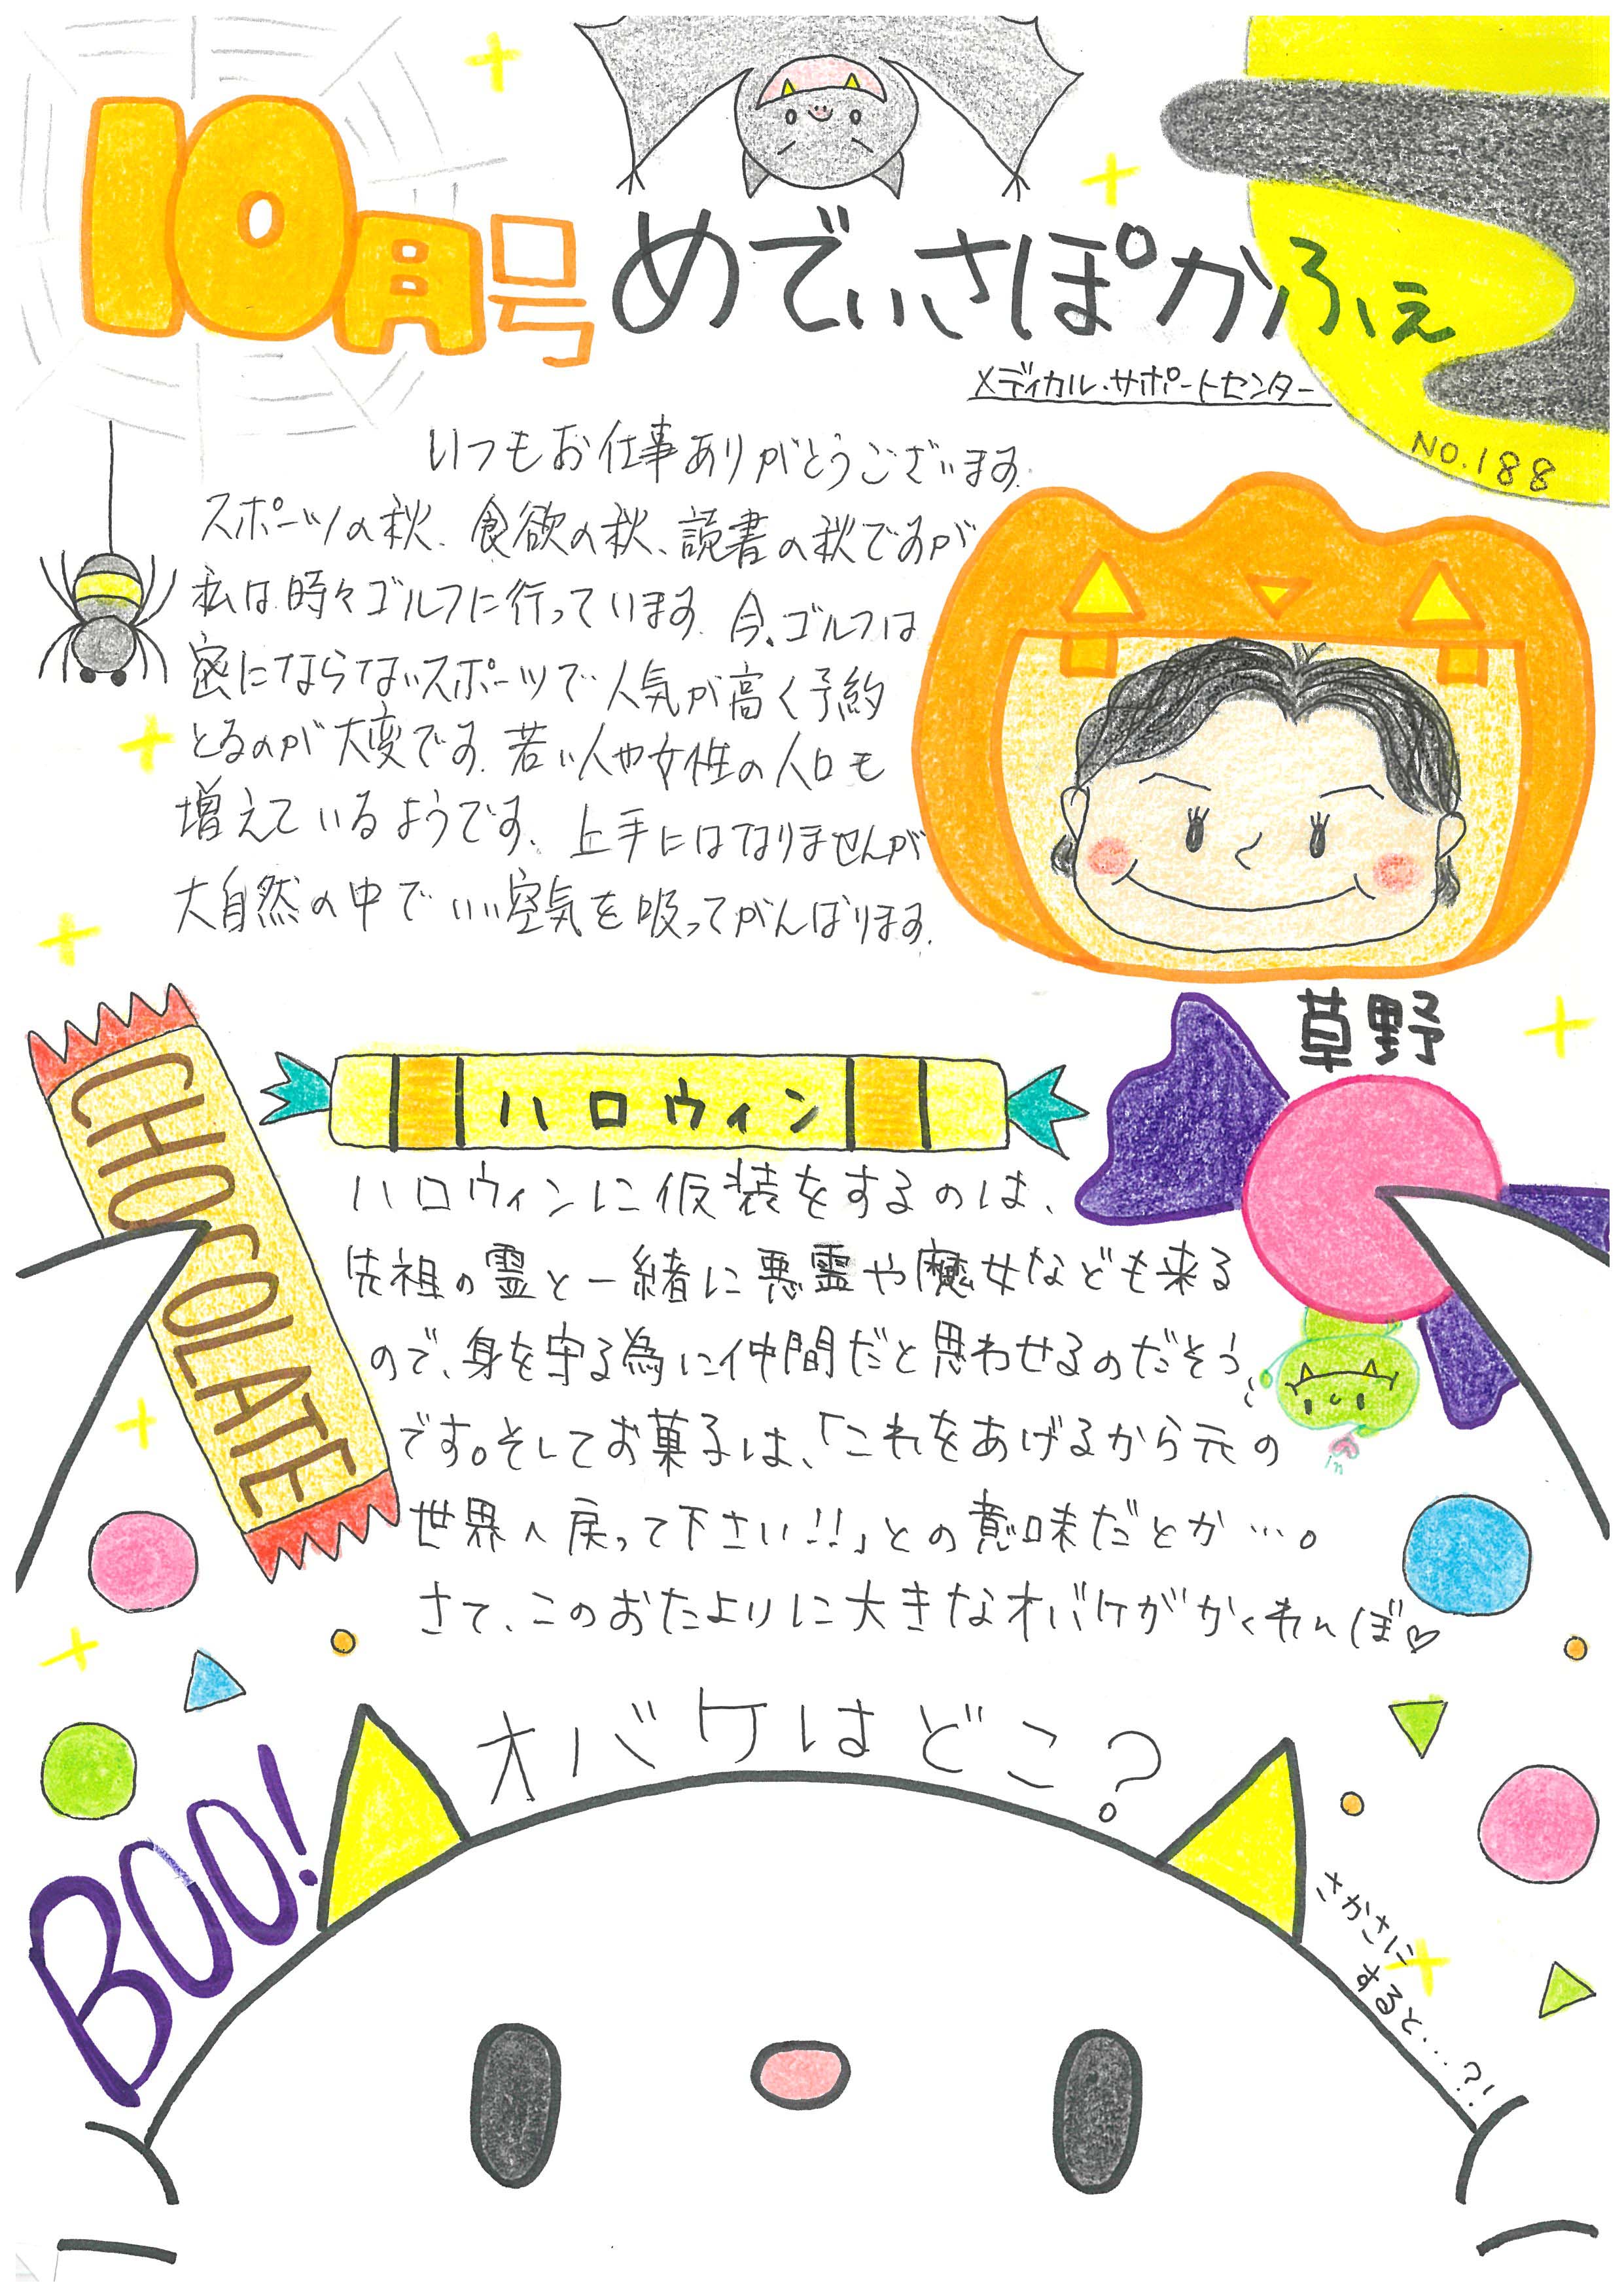 10月号 めでぃさぽかふぇ
メディカル・サポートセンター
NO.188
いつもお仕事ありがとうございます。
スポーツの秋、食欲の秋、読書の秋ですが
私は時々ゴルフに行っています。今、ゴルフは
密にならないスポーツで人気が高く予約
とるのが大変です。若い人や女性の人口も
増えているようです、上手にはなりませんが
大自然の中でいい空気を吸ってがんばります。
草野
CHOCOLATE
ハロウィン
ハロウィンに仮装をするのは、
先祖の霊と一緒に悪霊や魔女なども来る
ので、身を守る為に仲間だと思わせるのだそう
です。そしてお菓子は、「これをあげるから元の
世界へ戻って下さい!!」との意味だとか…。
さて、このおたよりに大きなオバケがかくれんぼ♡
オバケはどこ?
BOO!
さかさに
すると…?!